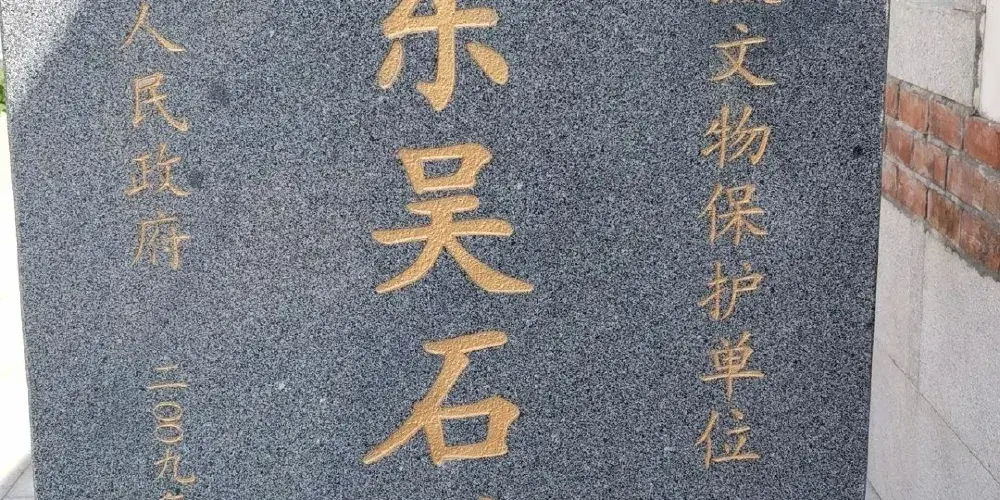 文物保护单位
东吴石
人民政府
二〇〇九年